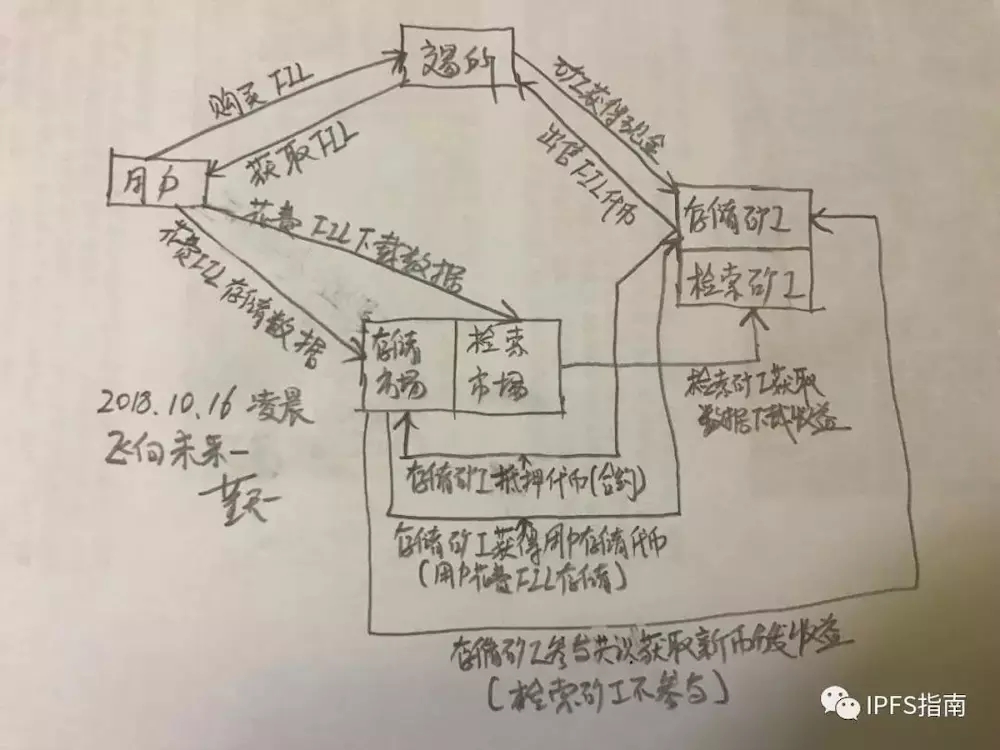 交易所
购买FIL
获取FIL
矿工获得现金
出售FIL代币
用户
花费FIL下载数据
花费FIL存储数据
存储矿工
检索矿工
存储市场
检索市场
检索矿工获取
数据下载收益
2018.10.16 凌晨
飞向未来一
存储矿工抵押代币(合约)
存储矿工获得用户存储代币
(用户花费FIL存储)
存储矿工参与共识获取新币分发收益
(检索矿工不参与)
IPFS指南